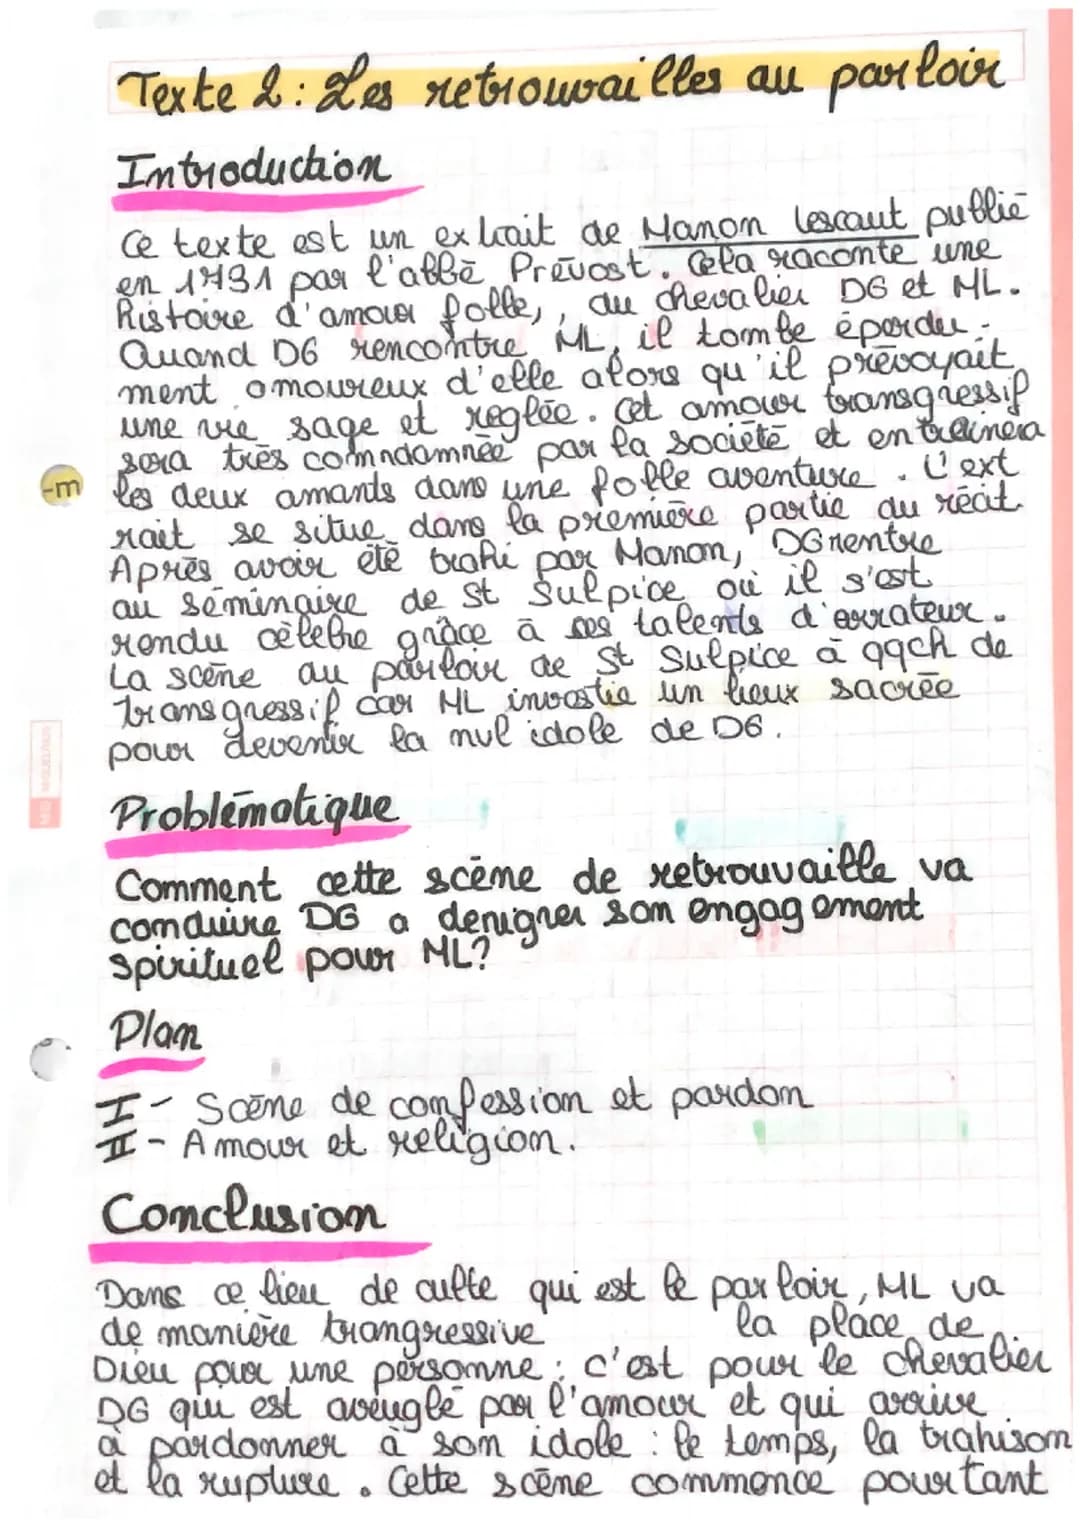 Texte 2 : Les retrouvailles au parloir
Introduction
Ce texte est un extrait de Manon Lescaut publié
en 1731 par l'abbé Prévost. Cela raconte une
histoire d'amour folle, du chevalier DG et ML.
Quand DG rencontre ML, il tombe éperdu-
ment amoureux d'elle alors qu'il prévoyait
une vie sage et reglée. Cet amour transgressif
sera très comndamnée par la société et entrainera
-m
les deux amants dans une folle aventure. L'ext
rait se situe dans la première partie du récit.
Après avoir été trahi par Manon, DG rentre
au séminaire de St Sulpice où il s'est
rendu célèbre grâce à ses talents d'orrateur.
La scène au parloir de St Sulpice à qqch de
transgressif car ML investie un lieux sacrée
pour devenir la nvl idole de DG.
Problématique
Comment cette scène de retrouvaille va
conduire DG a denigrer son engagement
spirituel pour ML?
Plan
I - Scène de confession et pardon
II - Amour et religion.
Conclusion
Dans ce lieu de culte qui est le parloir, ML va
de manière trangressive la place de
Dieu pour une personne : c'est pour le chevalier
DG qui est aveuglé par l'amour et qui arrive
à pardonner à son idole : le temps, la trahison
et la rupture. Cette scène commence pourtant